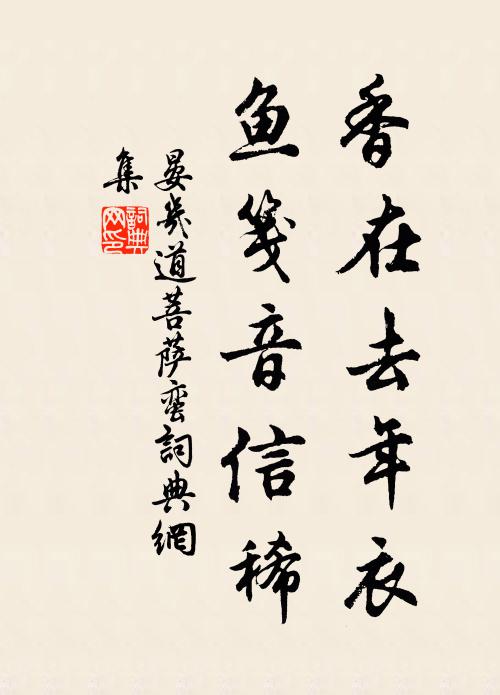 香在去年衣
鱼笺音信稀
晏幾道菩萨蛮詞典網
集
詞典网印